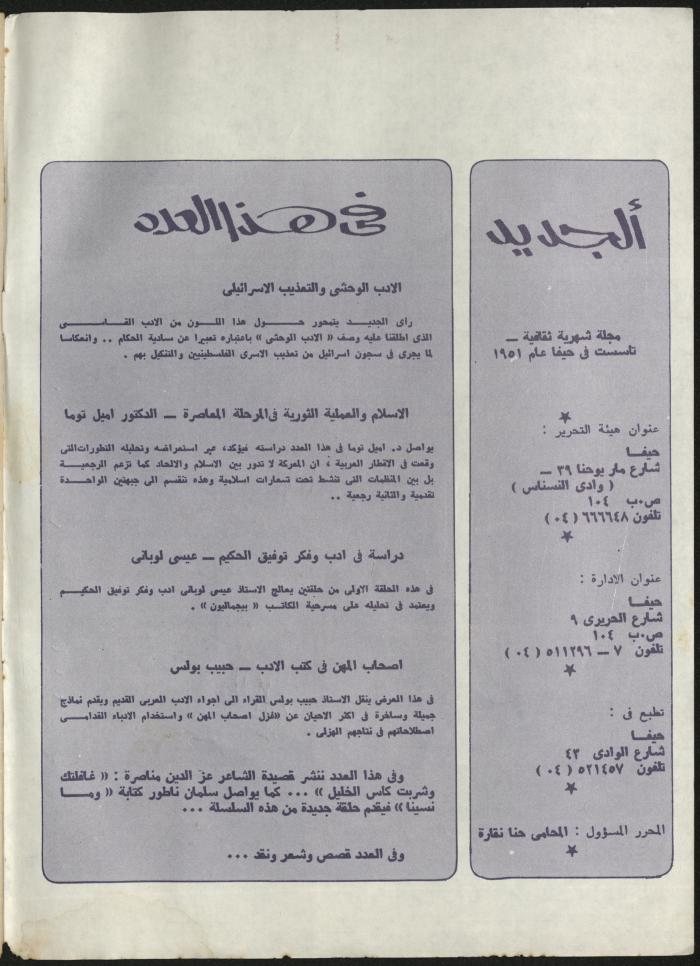 ألجديد
مجلة شهرية ثقافية ــ
تاسست في حيفا عام ١٩٥١
عنوان هيئة التحرير :
حيفــا
شارع مار يوحنا ٣٩ ــ
( وادى النسناس )
ص.ب ١٠٤
تلفون ٦٦٦٦٤٨ ( ٠٤ )
عنوان الادارة :
حيفــا
شارع الحريرى ٩
ص.ب ١٠٤
تلفون ٧ ــ ٥١١٢٩٦ ( ٠٤ )
تطبع في :
حيفــا
شارع الوادى ٤٣
تلفون ٥٢١٤٥٧ ( ٠٤ )
المحرر المسؤول : المحامى حنا نقارة
في هذا العدد
الادب الوحشى والتعذيب الاسرائيلى
راى الجديــد يتمحور حــول هذا اللــون من الادب القــاســى
الذى اطلقنا عليه وصف « الادب الوحشى » باعتباره تعبيرا عن سادية الحكام .. وانعكاسا
لما يجرى في سجون اسرائيل من تعذيب الاسرى الفلسطينيين والتنكيل بهم .
الاسلام والعملية الثورية في المرحلة المعاصرة ــ الدكتور اميل توما
يواصل د. اميل توما في هذا العدد دراسته فيؤكد، عبر استعراضه وتحليله التطورات التى
وقعت في الاقطار العربية ، ان المعركة لا تدور بين الاسلام والالحاد كما تزعم الرجعيــة
بل بين المنظمات التى تنشط تحت شعارات اسلامية وهذه تنقسم الى جبهتين الواحــدة
تقدمية والثانية رجعية ..
دراسة في ادب وفكر توفيق الحكيم ــ عيسى لوبانى
في هذه الحلقة الاولى من حلقتين يعالج الاستاذ عيسى لوبانى ادب وفكر توفيق الحكيــم
ويعتمد في تحليله على مسرحية الكاتــب « بيجماليون » .
اصحاب المهن في كتب الادب ــ حبيب بولس
في هذا العرض ينقل الاستاذ حبيب بولس القراء الى اجواء الادب العربى القديم ويقدم نماذج
جميلة وساخرة في اكثر الاحيان عن «غزل اصحاب المهن » واستخدام الادباء القدامــى
اصطلاحاتهم في نتاجهم الهزلى .
وفى هذا العدد ننشر قصيدة الشاعر عز الدين مناصرة : « غافلتك
وشربت كاس الخليل » ... كما يواصل سلمان ناطور كتابة « ومــا
نسينا » فيقدم حلقة جديدة من هذه السلسلة ...
وفى العدد قصص وشعر ونقد ...